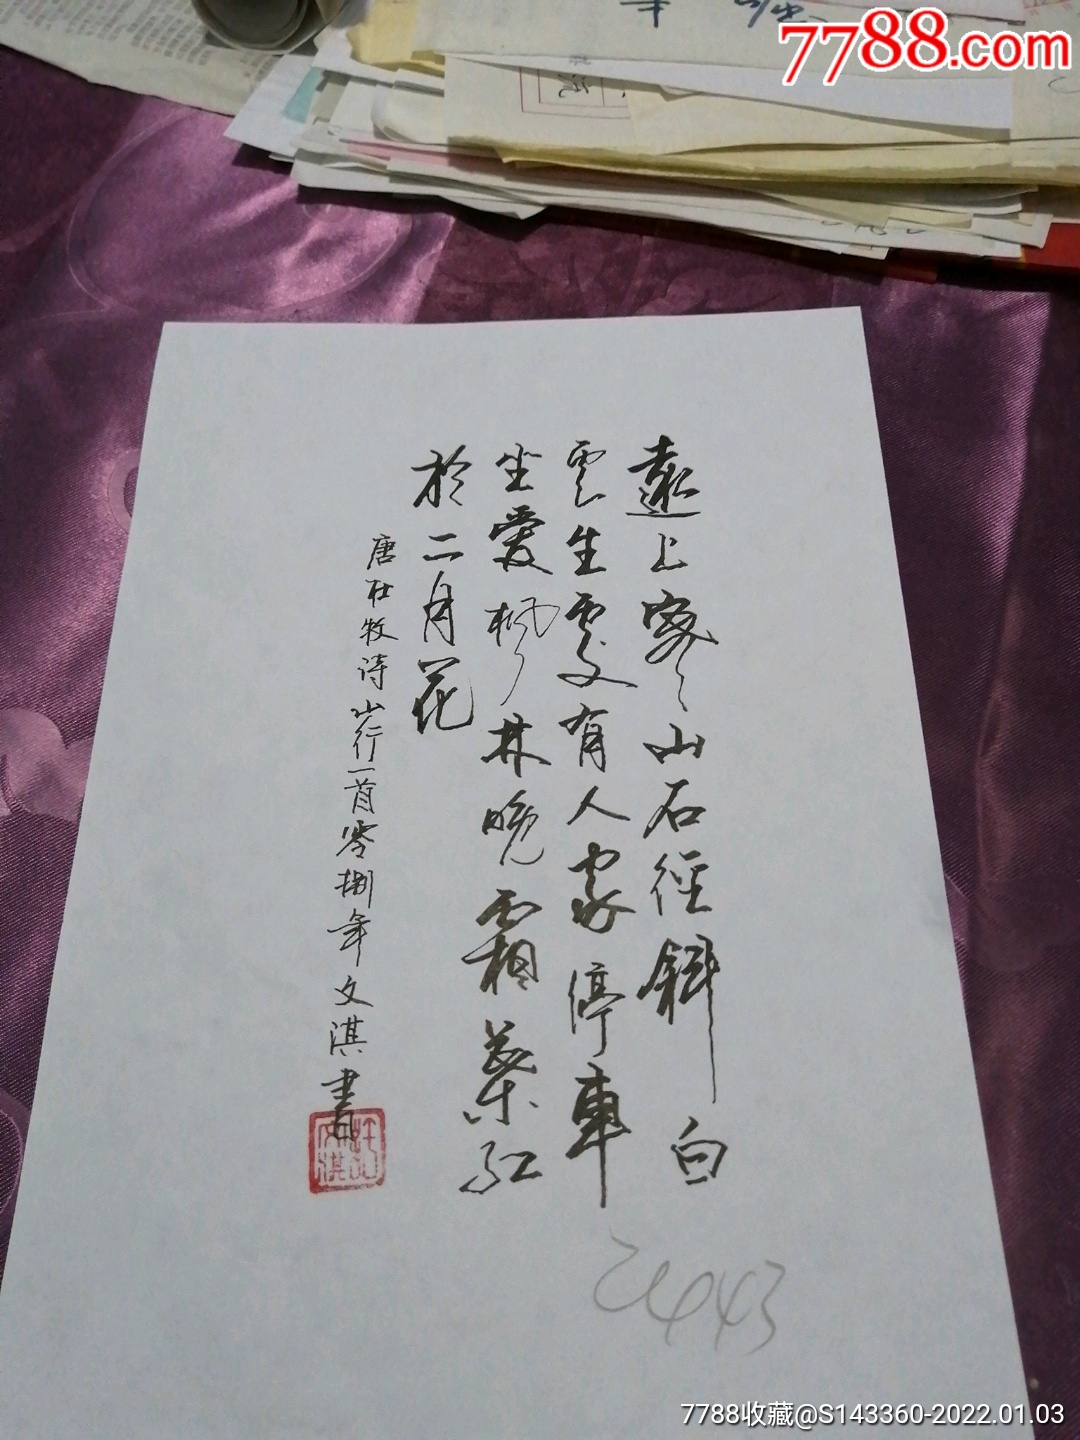 7788.com
遠上寒山石徑斜白
雲生處有人家停車
坐愛楓林晚霜葉紅
於二月花
唐杜牧詩山行一首零捌年文淇書
2443
7788收藏@S143360-2022.01.03